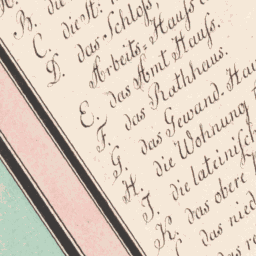 B. die
C. die St:
D. das Schloss,
Arbeits= Hauss
E. das Amt Hauss.
F. das Rathhaus.
G. das Gewand. Hau
H. die Wohnung
I. die lateinisch
K. das obere
das nied